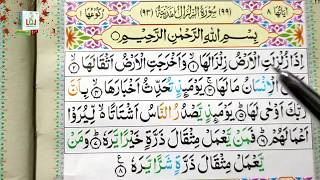 اٰیَاتُهَا ۸ (۹۹) سُوْرَةُ الزِّلْزَالِ مَدَنِیَّةٌ (۹۳) رُكُوْعُهَا ۱
بِسْمِ اللّٰهِ الرَّحْمٰنِ الرَّحِیْمِ
اِذَا زُلْزِلَتِ الْاَرْضُ زِلْزَالَهَا ۱ وَاَخْرَجَتِ الْاَرْضُ اَثْقَالَهَا ۲
الْاِنْسَانُ مَا لَهَا ۳ یَوْمَئِذٍ تُحَدِّثُ اَخْبَارَهَا ۴ بِاَنَّ
رَبَّكَ اَوْحٰی لَهَا ۵ یَوْمَئِذٍ یَّصْدُرُ النَّاسُ اَشْتَاتًا لِّیُرَوْا
اَعْمَالَهُمْ ۶ فَمَنْ یَّعْمَلْ مِثْقَالَ ذَرَّةٍ خَیْرًا یَّرَهٗ ۷ وَمَنْ
یَّعْمَلْ مِثْقَالَ ذَرَّةٍ شَرًّا یَّرَهٗ ۸